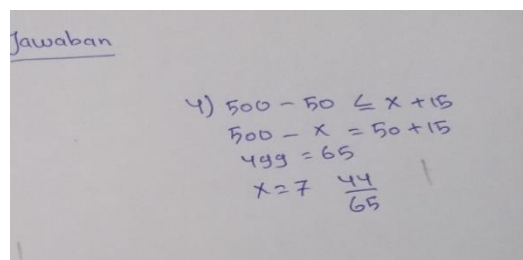 Jawaban
4) 500 - 50 ≤ x + 15
500 - x = 50 + 15
499 = 65
x = 7 44/65